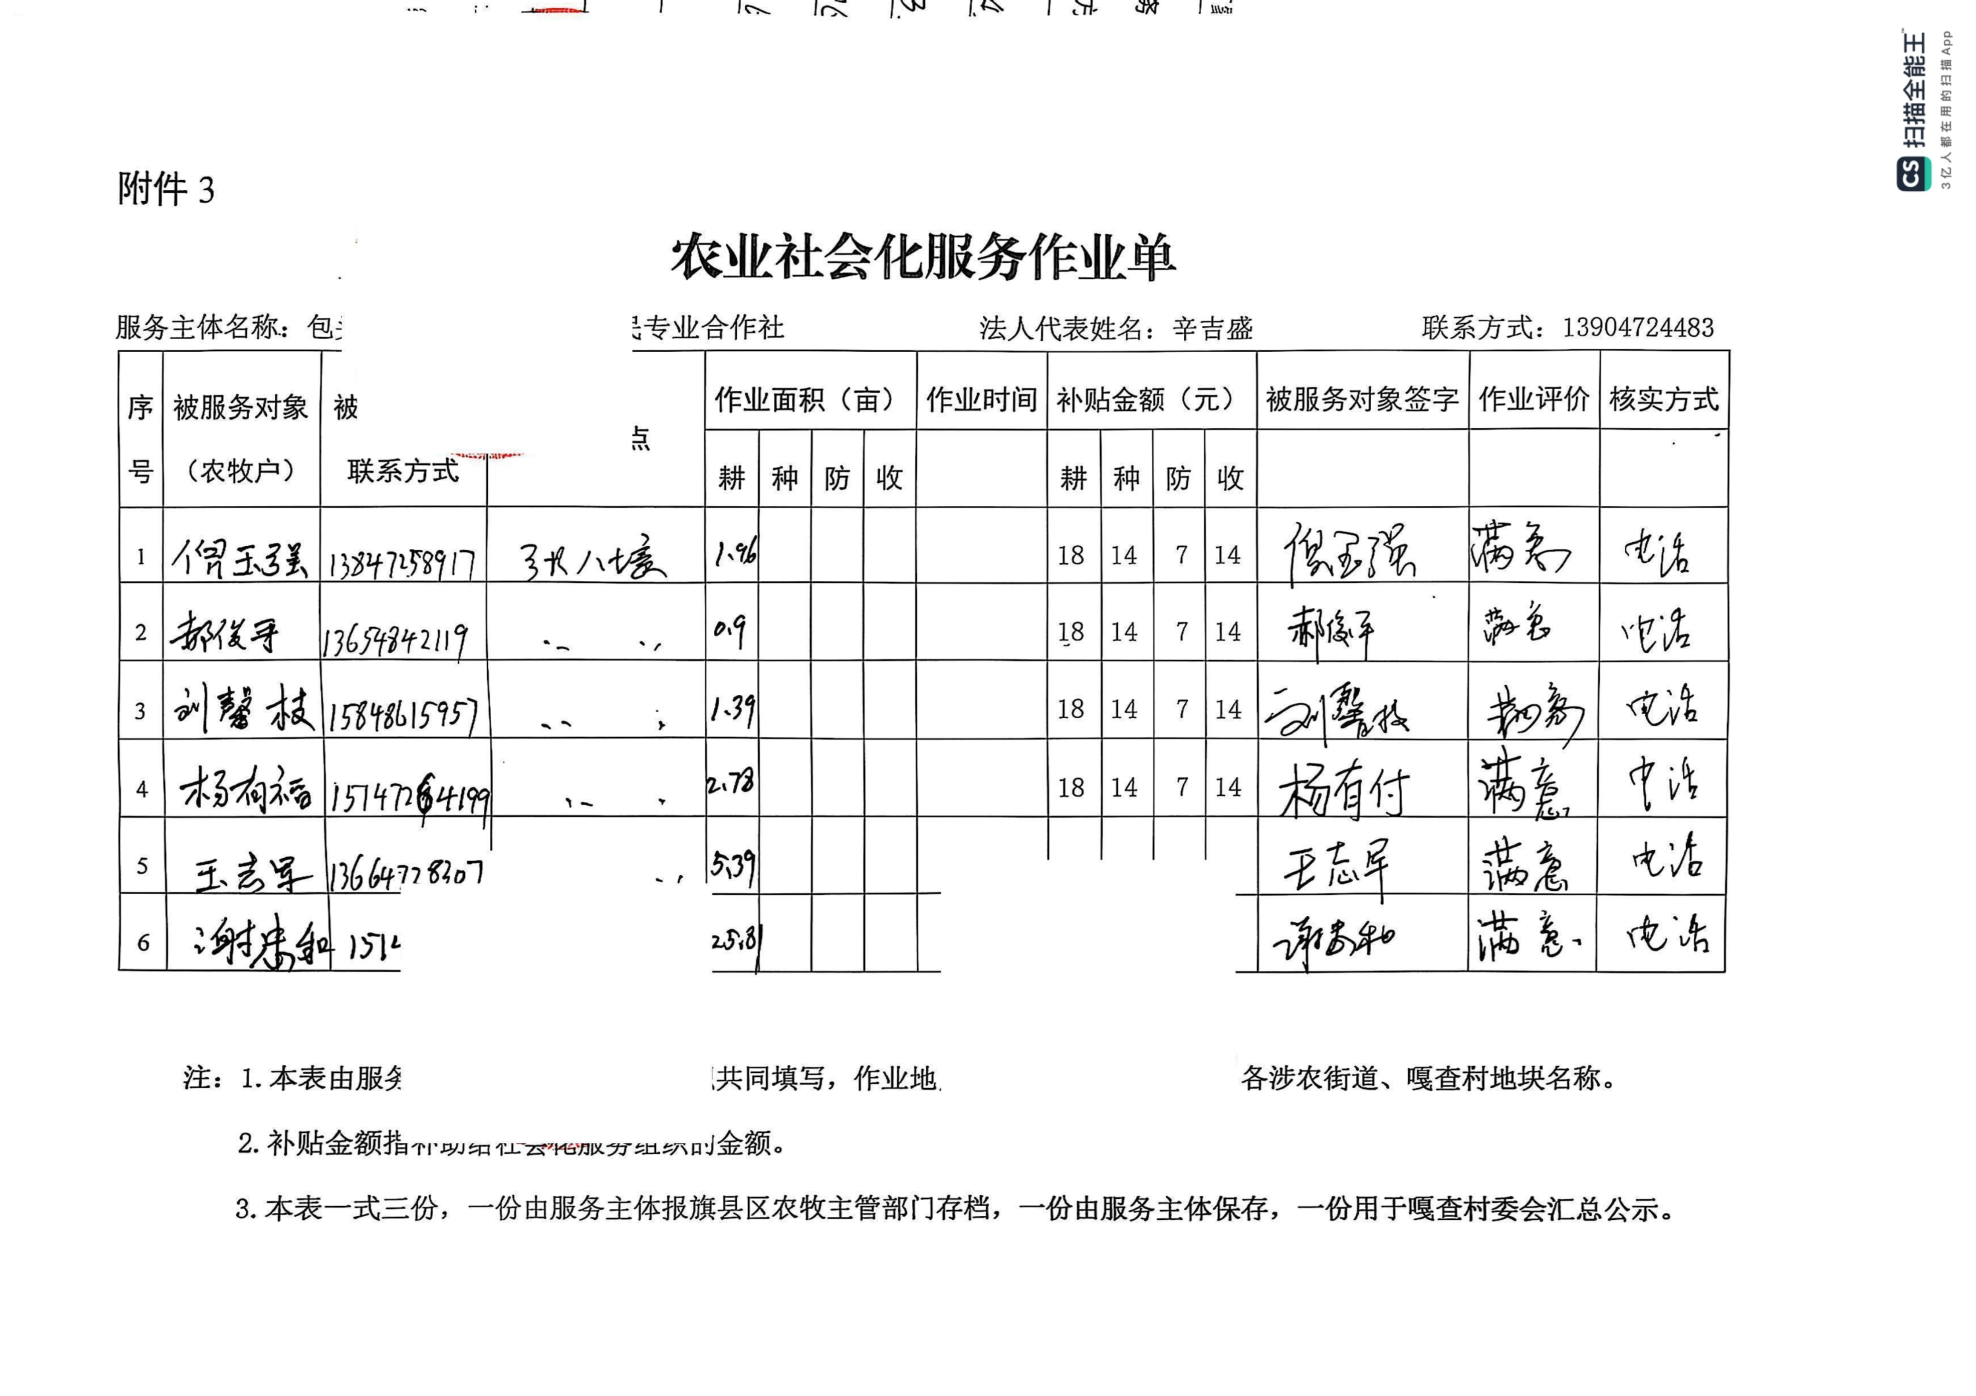 扫描全能王
3亿人都在用的扫描App
附件 3
农业社会化服务作业单
服务主体名称：包 专业合作社 法人代表姓名：辛吉盛 联系方式：13904724483
序号 被服务对象（农牧户） 被 联系方式 点 作业面积（亩） 作业时间 补贴金额（元） 被服务对象签字 作业评价 核实方式
耕 种 防 收 耕 种 防 收
1 倪玉强 13847258917 1.96 18 14 7 14 倪玉强 满意 电话
2 郝俊平 13654842119 0.9 18 14 7 14 郝俊平 满意 电话
3 刘馨枝 15848615957 1.39 18 14 7 14 刘馨枝 满意 电话
4 杨有福 2.78 18 14 7 14 杨有付 满意 电话
5 王志军 13664728307 5.39 王志军 满意 电话
6 谢忠和 151 25.81 谢忠和 满意 电话
注：1.本表由服务 共同填写，作业地 各涉农街道、嘎查村地块名称。
2.补贴金额指补助给社会化服务组织的金额。
3.本表一式三份，一份由服务主体报旗县区农牧主管部门存档，一份由服务主体保存，一份用于嘎查村委会汇总公示。